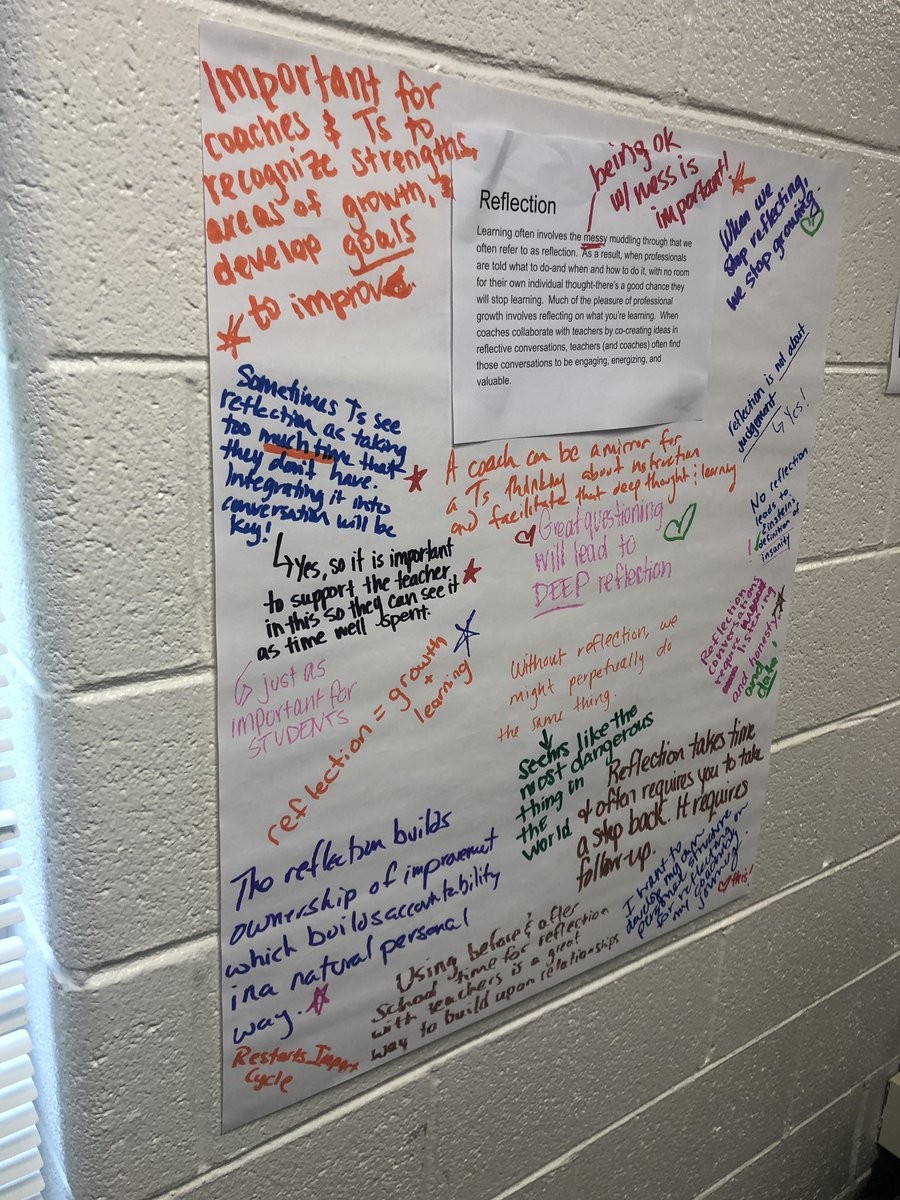 Important for
coaches & Ts to
recognize strengths,
areas of growth, &
develop goals
to improve
being ok
w/ mess is
important!
Reflection
Learning often involves the messy muddling through that we
often refer to as reflection. As a result, when professionals
are told what to do-and when and how to do it, with no room
for their own individual thought-there's a good chance they
will stop learning. Much of the pleasure of professional
growth involves reflecting on what you're learning. When
coaches collaborate with teachers by co-creating ideas in
reflective conversations, teachers (and coaches) often find
those conversations to be engaging, energizing, and
valuable.
When we
stop reflecting,
we stop growing.
Sometimes Ts see
reflection as taking
too much time that
they don't have.
Integrating it into
conversation will be
key!
Yes, so it is important
to support the teacher
in this so they can see it
as time well spent.
just as
important for
STUDENTS
reflection is not about
judgement
Yes!
A coach can be a mirror for
a Ts thinking about instruction
and facilitate that deep thought & learning
Great questioning
will lead to
DEEP reflection
No reflection
leads to
Einsteins
definition of
insanity
Reflection
conversations
require
listening
and honesty
and data!
reflection = growth
+
learning
Without reflection, we
might perpetually do
the same thing.
seems like the
most dangerous
thing in
the
world
Reflection takes time
& often requires you to take
a step back. It requires
follow-up.
The reflection builds
ownership of improvement
which builds accountability
in a natural personal
way.
Restarts Impr
Cycle
Using before & after
school time for reflection
with teachers is a great
way to build upon relationships
I want to
develop my own
personal structure
for reflecting on
my coaching
journey
this!